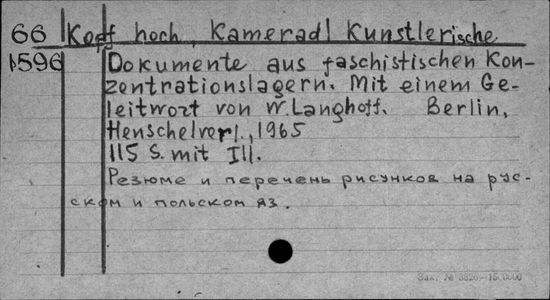 66 Kopf hoch, Kamerad! Kunstlerische
1596 Dokumente aus faschistischen Kon-
zentrationslagern. Mit einem Ge-
leitwort von W. Langhoff. Berlin,
Henschelverl., 1965
115 S. mit Ill.
Резюме и перечень рисунков на рус-
ском и польском яз.
Зак. № 3820—15.0000